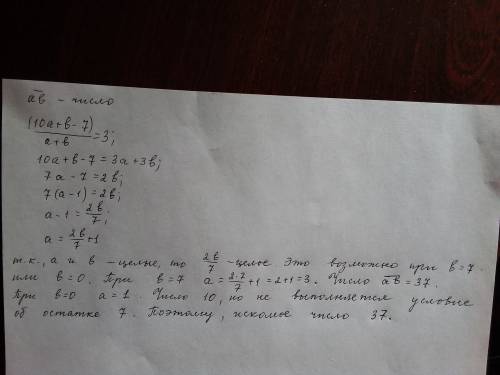 ав - число
(10а+в-7)/а+в=3;
10а+в-7=3а+3в;
7а-7=2в;
7(а-1)=2в;
а-1=2в/7;
а=2в/7+1
т.к., а и в - целые, то 2в/7 - целое. Это возможно при в=7.
или в=0. При в=7 а=2·7/7+1=2+1=3. Число ав=37.
При в=0 а=1. Число 10, но не выполняется условие
об остатке 7. Поэтому, искомое число 37.